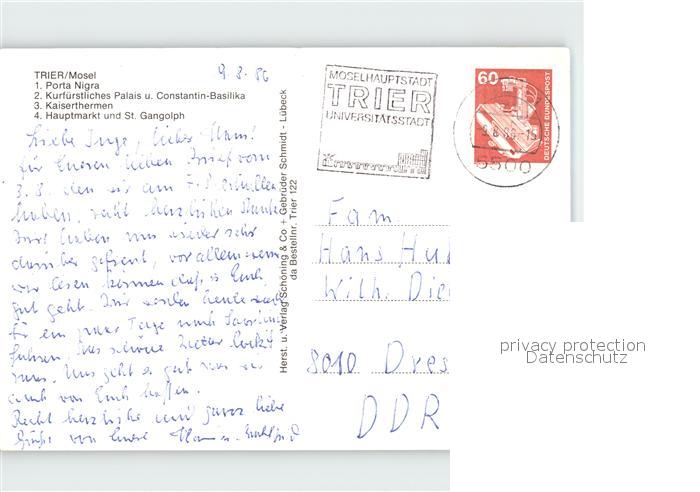 TRIER/Mosel
1. Porta Nigra
2. Kurfürstliches Palais u. Constantin-Basilika
3. Kaiserthermen
4. Hauptmarkt und St. Gangolph
9.8.86
Liebe Inge, lieber Hans!
für Eueren lieben Brief vom
3.8. den wir am 7.8. erhalten
haben, recht herzlichen Dank.
Wir haben uns wieder sehr
darüber gefreut, vor allem wenn
wir lesen können daß es Euch
gut geht. Wir wollen heute
für ein paar Tage nach
fahren, das schöne Wetter lockt
uns. Uns geht es gut was wir
auch von Euch hoffen.
Recht herzliche und ganz liebe
Grüße von Euere
Herst. u. Verlag Schöning & Co + Gebrüder Schmidt - Lübeck
da Bestellnr. Trier 122
MOSELHAUPTSTADT
TRIER
UNIVERSITÄTSSTADT
60
DEUTSCHE BUNDESPOST
5500
Fam.
Hans
Wilh.
8010 Dres
DDR
privacy protection
Datenschutz